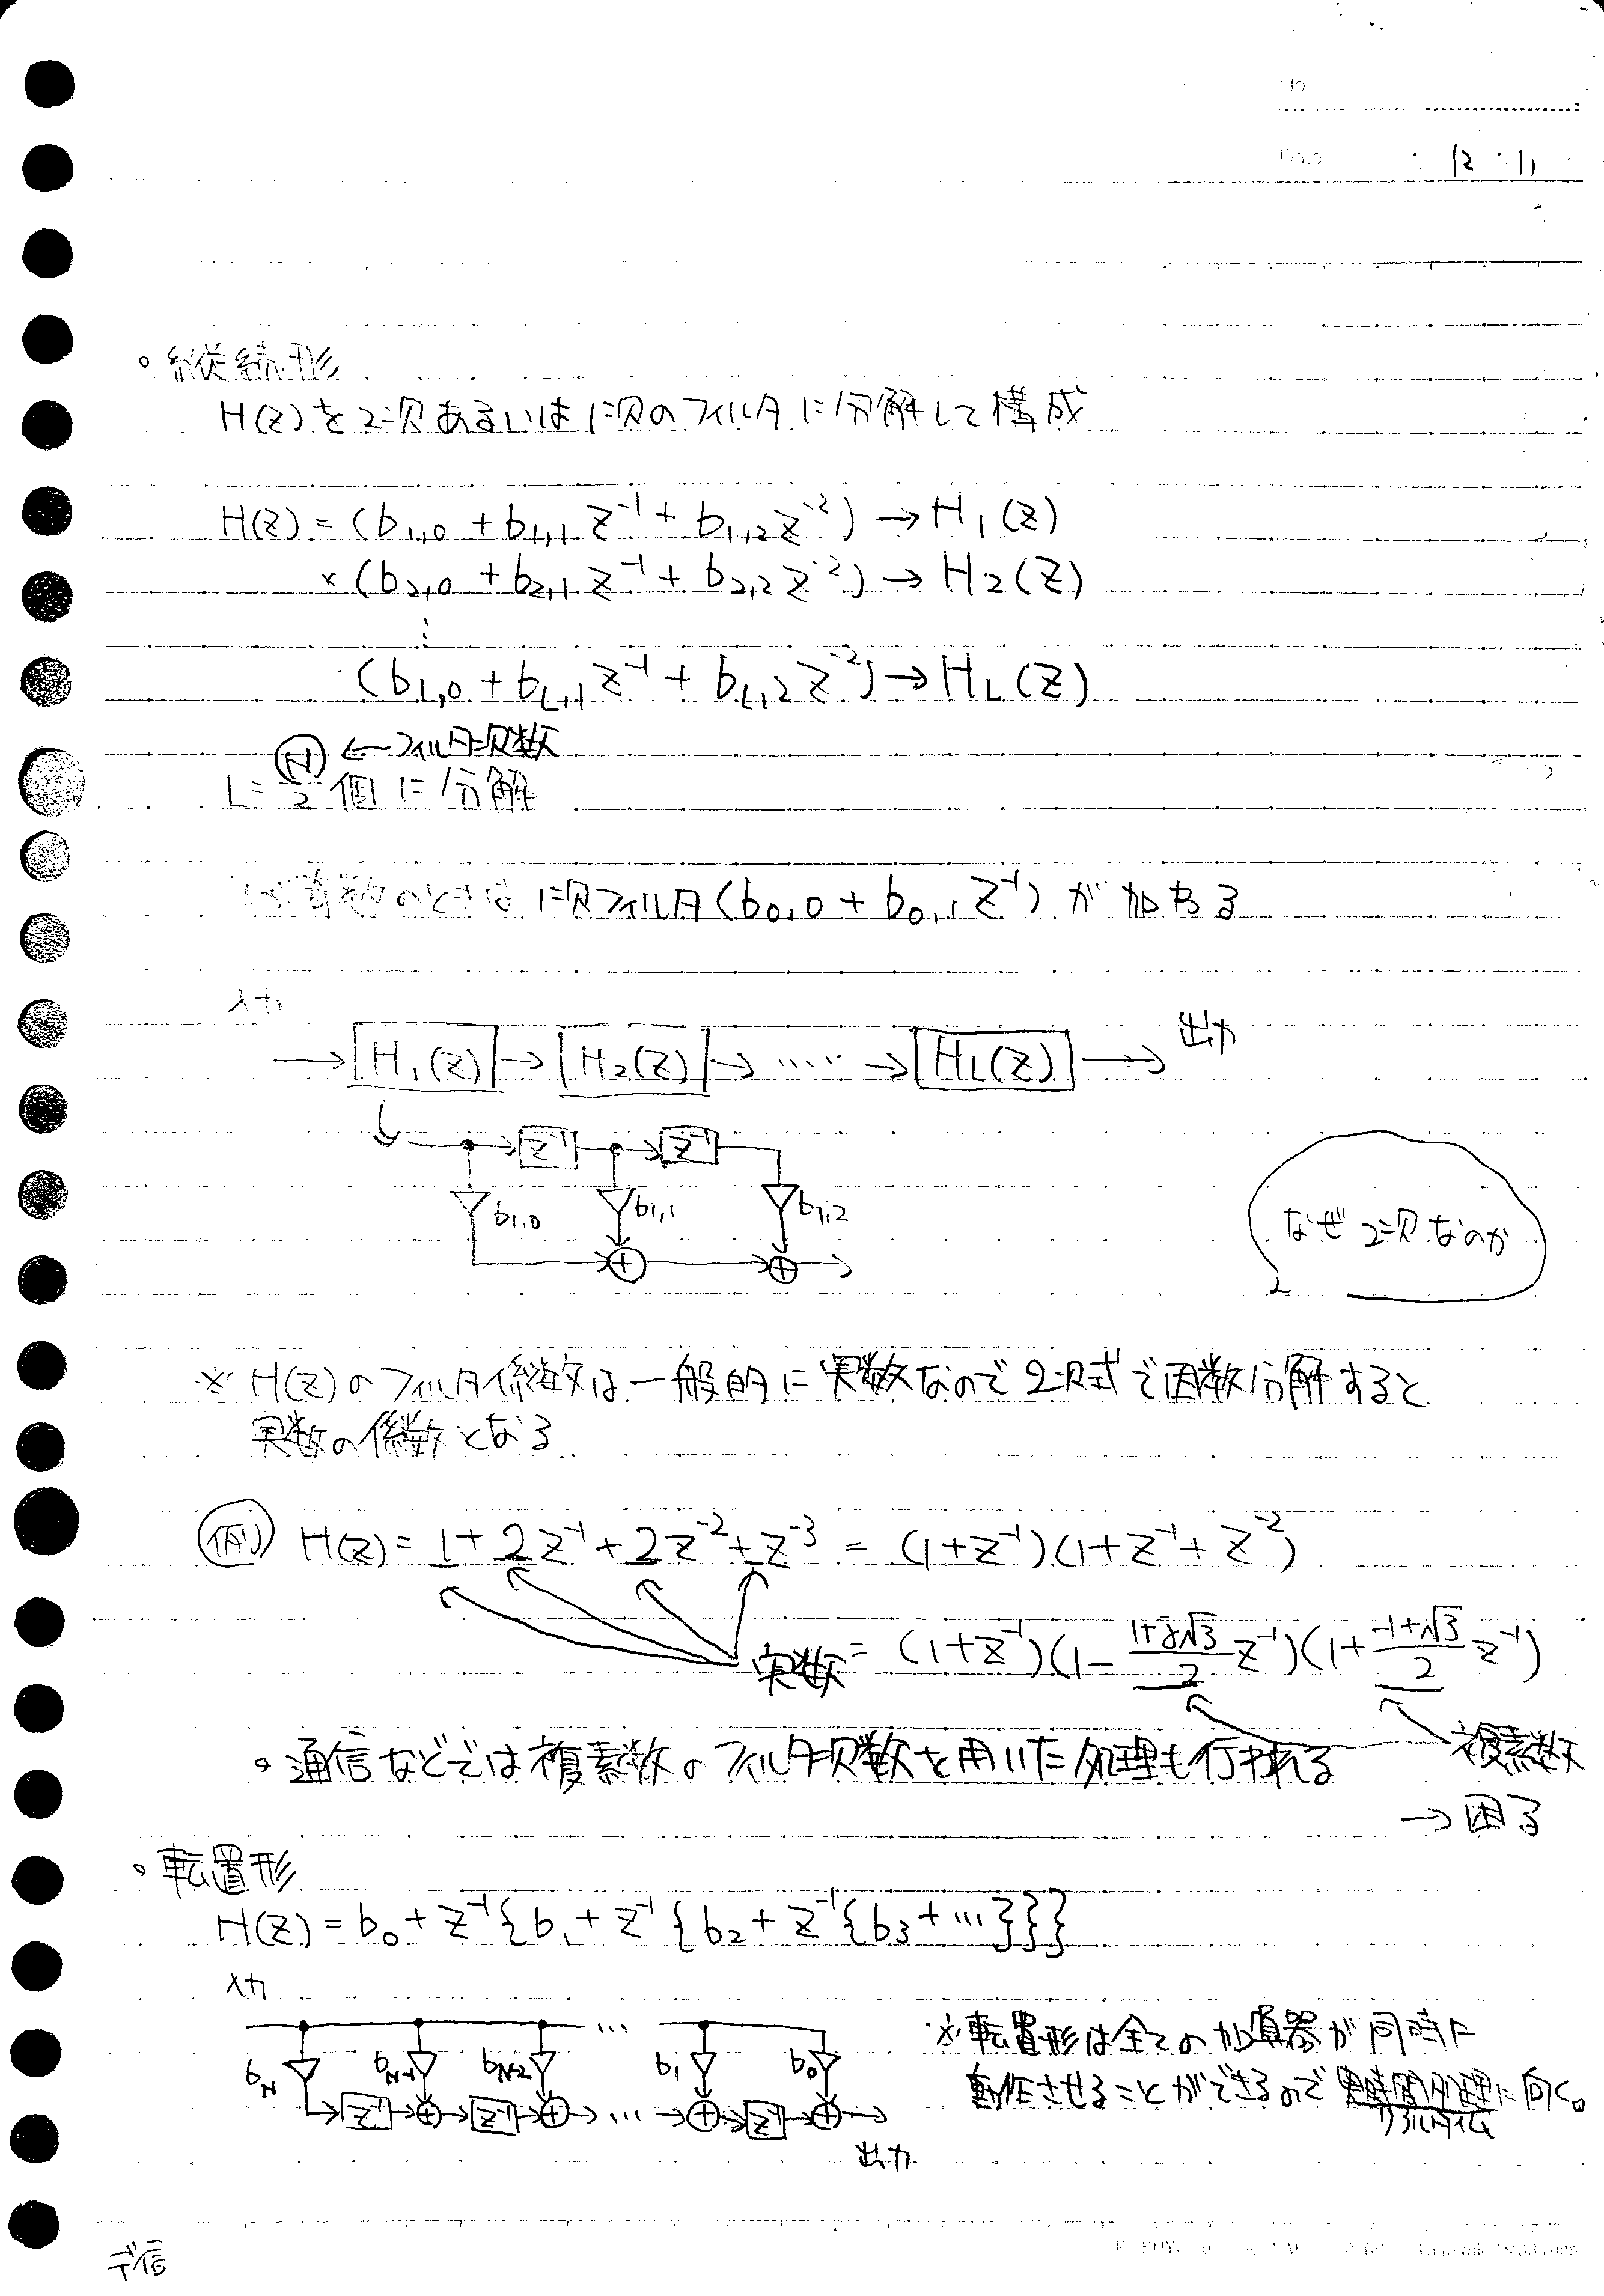 No
Date ・12・11
。縦続形
H(z)を2次あるいは1次のフィルタに分解して構成
H(z) = (b1,0 + b1,1 z⁻¹ + b1,2 z⁻²) → H1(z)
× (b2,0 + b2,1 z⁻¹ + b2,2 z⁻²) → H2(z)
⋮
(bL,0 + bL,1 z⁻¹ + bL,2 z⁻²) → HL(z)
L = N/2 個に分解 N ← フィルタ次数
が奇数のときは 1次フィルタ (b0,0 + b0,1 z⁻¹) が加わる
入力
→ H1(z) → H2(z) → ⋯⋯ → HL(z) → 出力
z⁻¹ z⁻¹
b1,0 b1,1 b1,2
+ +
なぜ2次なのか
※ H(z)のフィルタ係数は一般的に実数なので2次式で因数分解すると
実数の係数となる
例 H(z) = 1 + 2z⁻¹ + 2z⁻² + z⁻³ = (1+z⁻¹)(1+z⁻¹+z⁻²)
実数 = (1+z⁻¹)(1 - (1+j√3)/2 z⁻¹)(1 + (-1+√3)/2 z⁻¹)
複素数
→ 困る
。通信などでは複素数のフィルタ次数を用いた処理も行われる
。転置形
H(z) = b0 + z⁻¹{b1 + z⁻¹{b2 + z⁻¹{b3 + ⋯}}}
入力
⋯
bN bN-1 bN-2 b1 b0
z⁻¹ → + → z⁻¹ → + → ⋯ → + → z⁻¹ → + →
出力
※転置形は全ての加算器が同時に
動作させることができるので実時間処理に向く。
リアルタイム
デ信